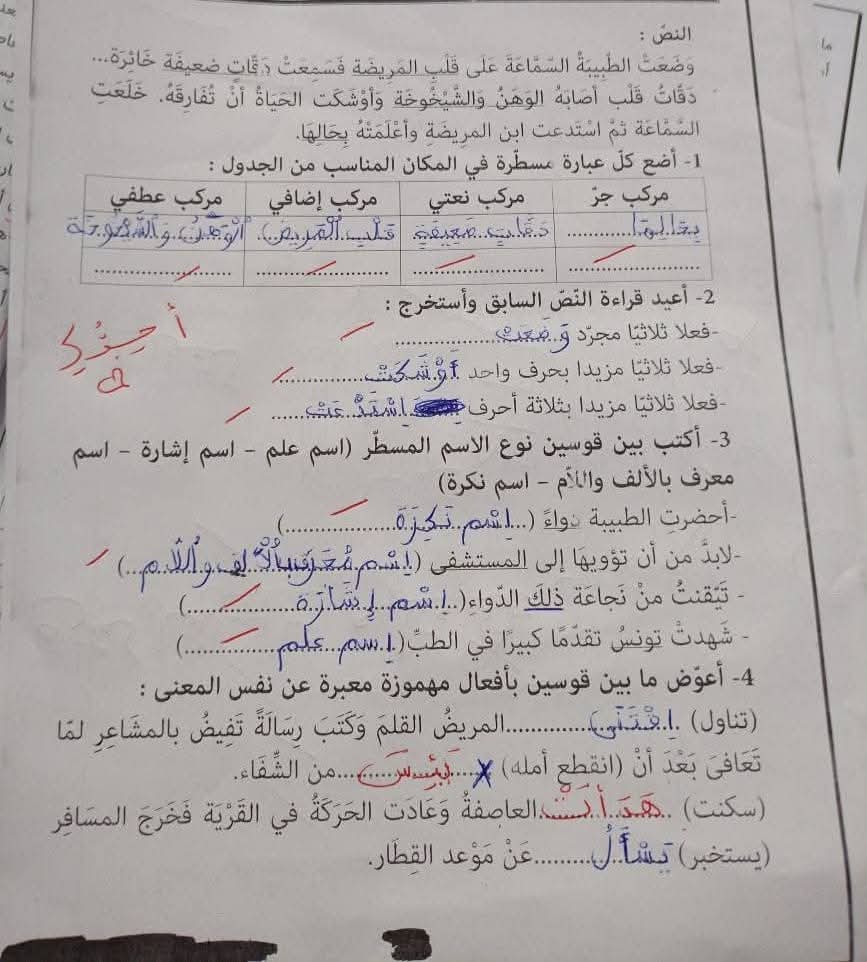 النصّ :
وَضَعَتْ الطَّبِيبَةُ السَّمَّاعَةَ عَلَى قَلْبِ المَرِيضَة فَسَمِعَتْ دَقّاتٍ ضعيفَة خَائِرَة...
دَقَاتُ قَلْب أصَابَهُ الوَهَنُ وَالشَّيْخُوخَة وَأوْشَكَت الحَيَاةُ أنْ تُفَارِقَهُ. خَلَعَتِ
السَّمَّاعَة ثمّ اسْتَدعت ابن المريضَة وأعْلَمَتْهُ بِحَالِهَا.
1- أضع كلّ عبارة مسطّرة في المكان المناسب من الجدول :
مركب جرّ مركب نعتي مركب إضافي مركب عطفي
بِحَالِهَا دَقَّاتٍ ضَعِيفَةٍ قَلْبِ الْمَرِيضَةِ الْوَهَنُ وَالشَّيْخُوخَةُ
2- أعيد قراءة النصّ السابق وأستخرج :
-فعلا ثلاثيّا مجرّد وَضَعَتْ
-فعلا ثلاثيّا مزيدا بحرف واحد أَوْشَكَتْ
-فعلا ثلاثيّا مزيدا بثلاثة أحرف اِسْتَدْعَتْ
أ جيّد
3- أكتب بين قوسين نوع الاسم المسطّر (اسم علم - اسم إشارة - اسم
معرف بالألف واللاّم - اسم نكرة)
-أحضرتِ الطبيبة دواءً (اِسْم نَكِرَة)
-لابدَّ من أن تؤويهَا إلى المستشفى (اِسْم مُعَرَّف بِالْأَلِف وَاللَّام)
- تَيّقنتُ منْ نَجاعَة ذلِكَ الدّواءِ(اِسْم إِشَارَة)
- شَهدتْ تونسُ تقدّمًا كبيرًا في الطبِّ(اِسم علم)
4- أعوّض ما بين قوسين بأفعال مهموزة معبرة عن نفس المعنى :
(تناول) المريضُ القلمَ وَكَتبَ رِسَالَةً تَفِيضُ بالمشَاعرِ لمّا
تَعَافىَ بَعْدَ أنْ (انقطع أمله) يَئِسَ من الشِّفَاء.
(سكنت) هَدَأَتْ العاصفةُ وَعَادَت الحَرَكَةُ في القَرْيَة فَخَرَجَ المسَافِر
(يستخبر) يَسْأَلُ عَنْ مَوْعد القِطَار.